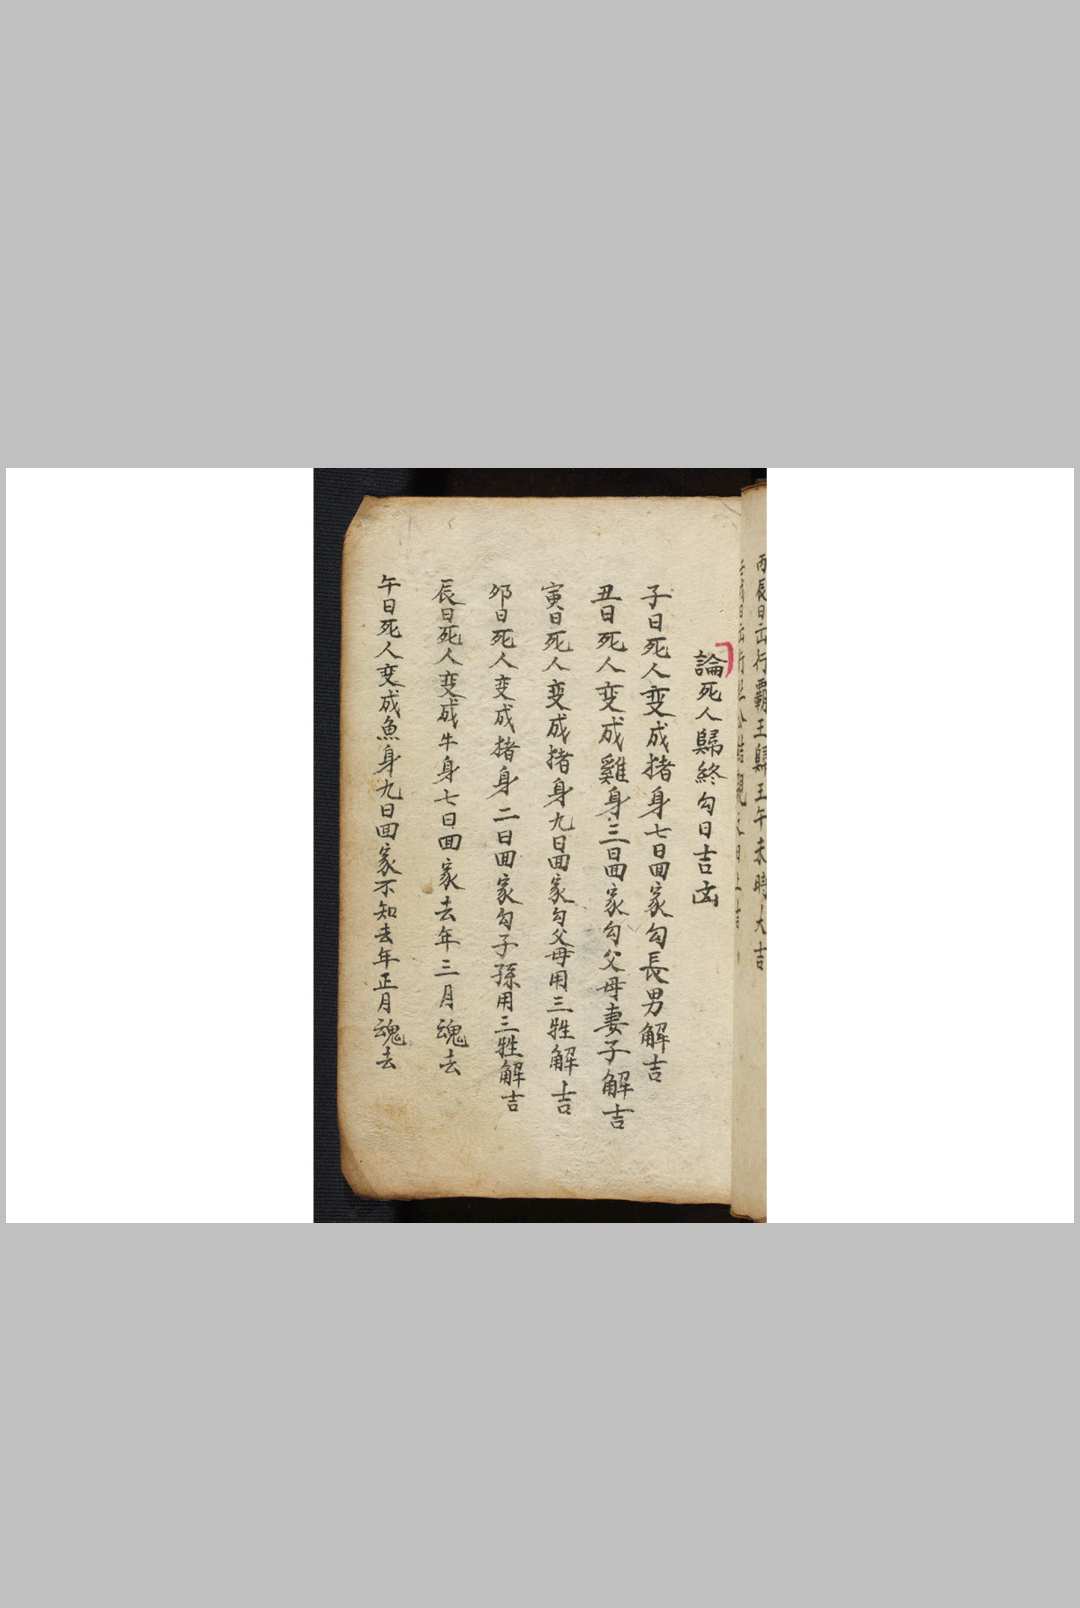 丙辰日出行霸王歸王午未時大吉
論死人歸終勾日吉凶
子日死人变成猪身七日回家勾長男解吉
丑日死人变成雞身三日回家勾父母妻子解吉
寅日死人变成猪身九日回家勾父母用三牲解吉
卯日死人变成猪身二日回家勾子孫用三牲解吉
辰日死人变成牛身七日回家去年三月魂去
午日死人变成魚身九日回家不知去年正月魂去